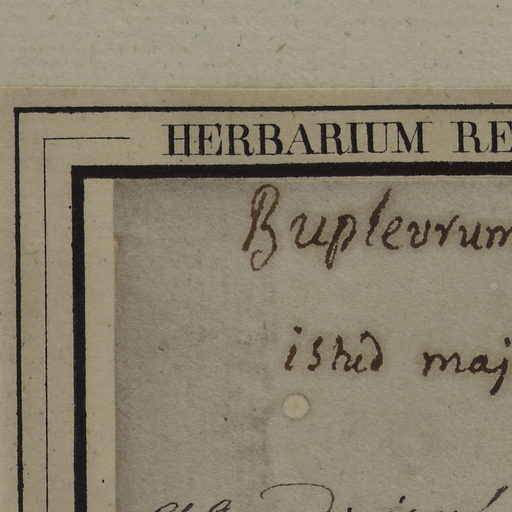 HERBARIUM RE
Bupleurum
istud maj